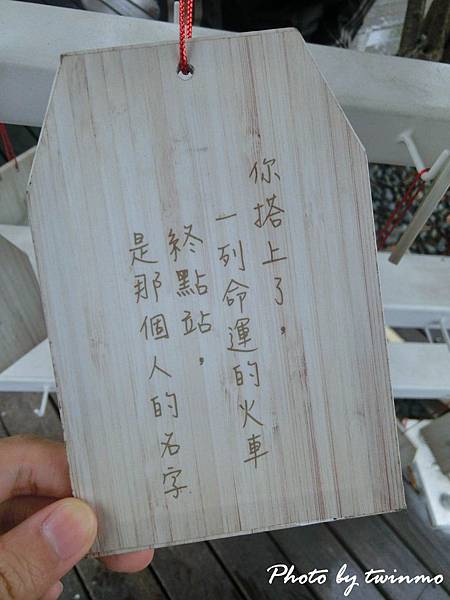 你搭上了，
一列命運的火車
終點站，
是那個人的名字
Photo by twinmo